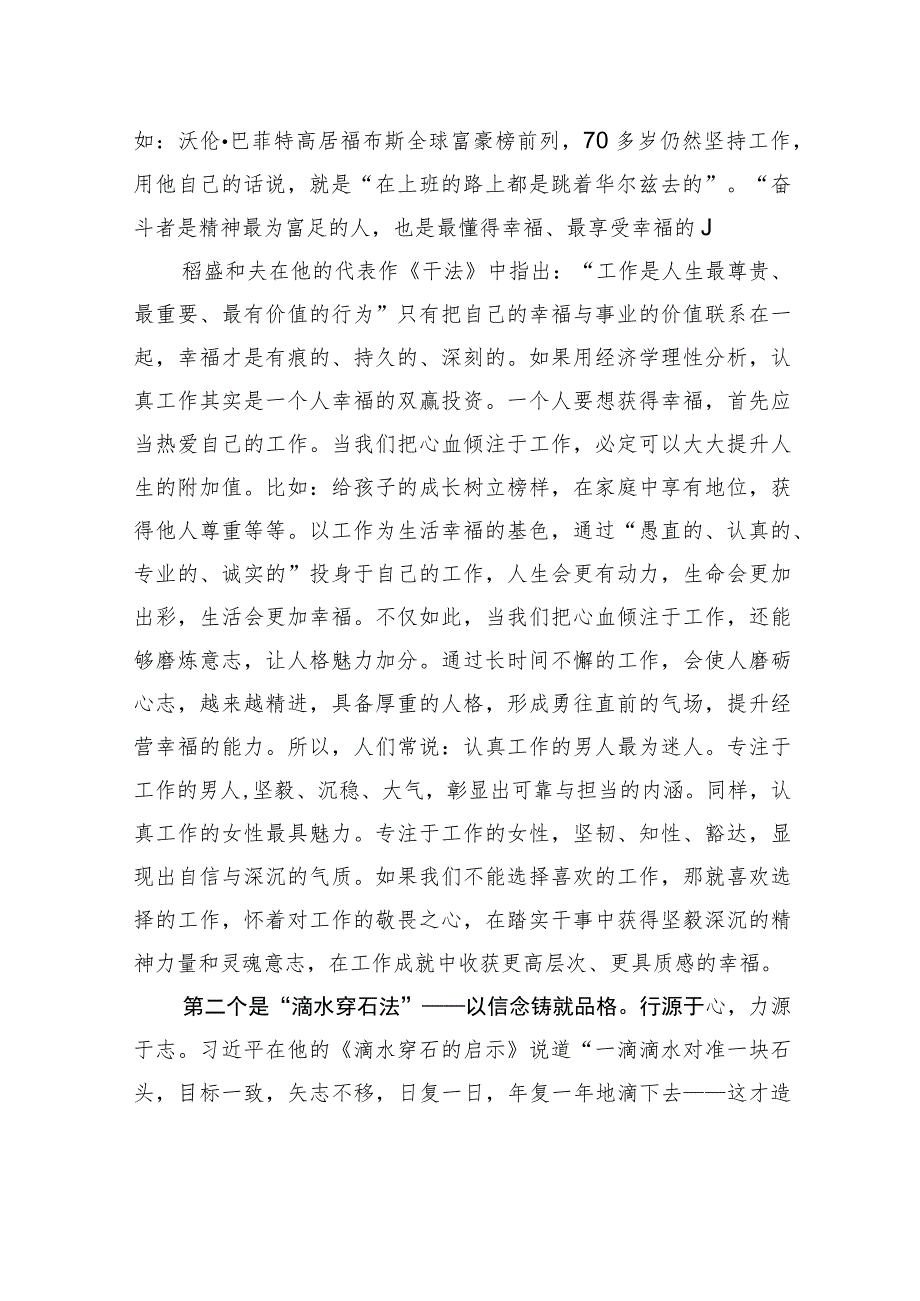 如：沃伦•巴菲特高居福布斯全球富豪榜前列，70 多岁仍然坚持工作，
用他自己的话说，就是“在上班的路上都是跳着华尔兹去的”。“奋
斗者是精神最为富足的人，也是最懂得幸福、最享受幸福的 J
稻盛和夫在他的代表作《干法》中指出：“工作是人生最尊贵、
最重要、最有价值的行为”只有把自己的幸福与事业的价值联系在一
起，幸福才是有痕的、持久的、深刻的。如果用经济学理性分析，认
真工作其实是一个人幸福的双赢投资。一个人要想获得幸福，首先应
当热爱自己的工作。当我们把心血倾注于工作，必定可以大大提升人
生的附加值。比如：给孩子的成长树立榜样，在家庭中享有地位，获
得他人尊重等等。以工作为生活幸福的基色，通过“愚直的、认真的、
专业的、诚实的”投身于自己的工作，人生会更有动力，生命会更加
出彩，生活会更加幸福。不仅如此，当我们把心血倾注于工作，还能
够磨炼意志，让人格魅力加分。通过长时间不懈的工作，会使人磨砺
心志，越来越精进，具备厚重的人格，形成勇往直前的气场，提升经
营幸福的能力。所以，人们常说：认真工作的男人最为迷人。专注于
工作的男人,坚毅、沉稳、大气，彰显出可靠与担当的内涵。同样，认
真工作的女性最具魅力。专注于工作的女性，坚韧、知性、豁达，显
现出自信与深沉的气质。如果我们不能选择喜欢的工作，那就喜欢选
择的工作，怀着对工作的敬畏之心，在踏实干事中获得坚毅深沉的精
神力量和灵魂意志，在工作成就中收获更高层次、更具质感的幸福。
第二个是“滴水穿石法”——以信念铸就品格。行源于心，力源
于志。习近平在他的《滴水穿石的启示》说道“一滴滴水对准一块石
头，目标一致，矢志不移，日复一日，年复一年地滴下去——这才造